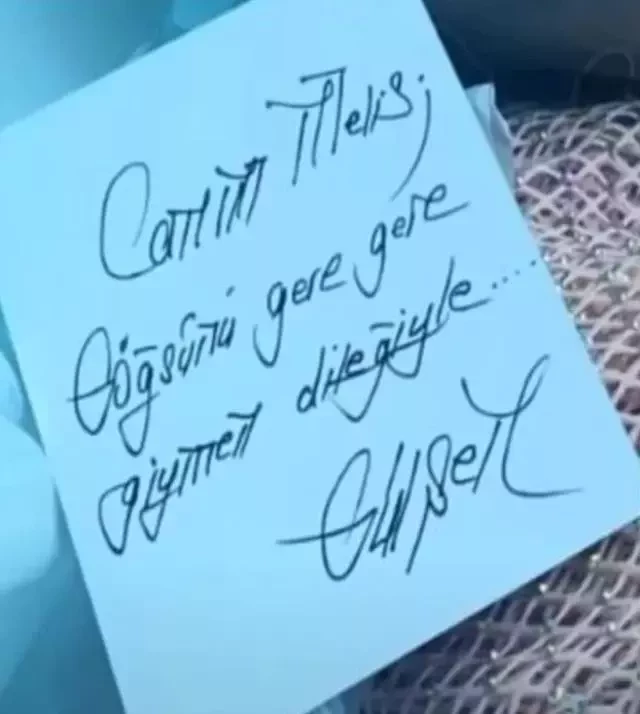 Canım Melis;
Göğsünü gere gere
giymen dileğiyle....
Gülşen